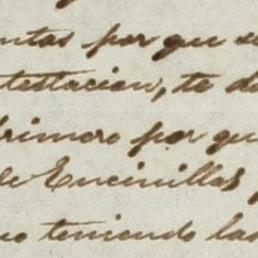 ntas por que se
testacion, te d
primero por qu
de Encinillas
no teniendo las